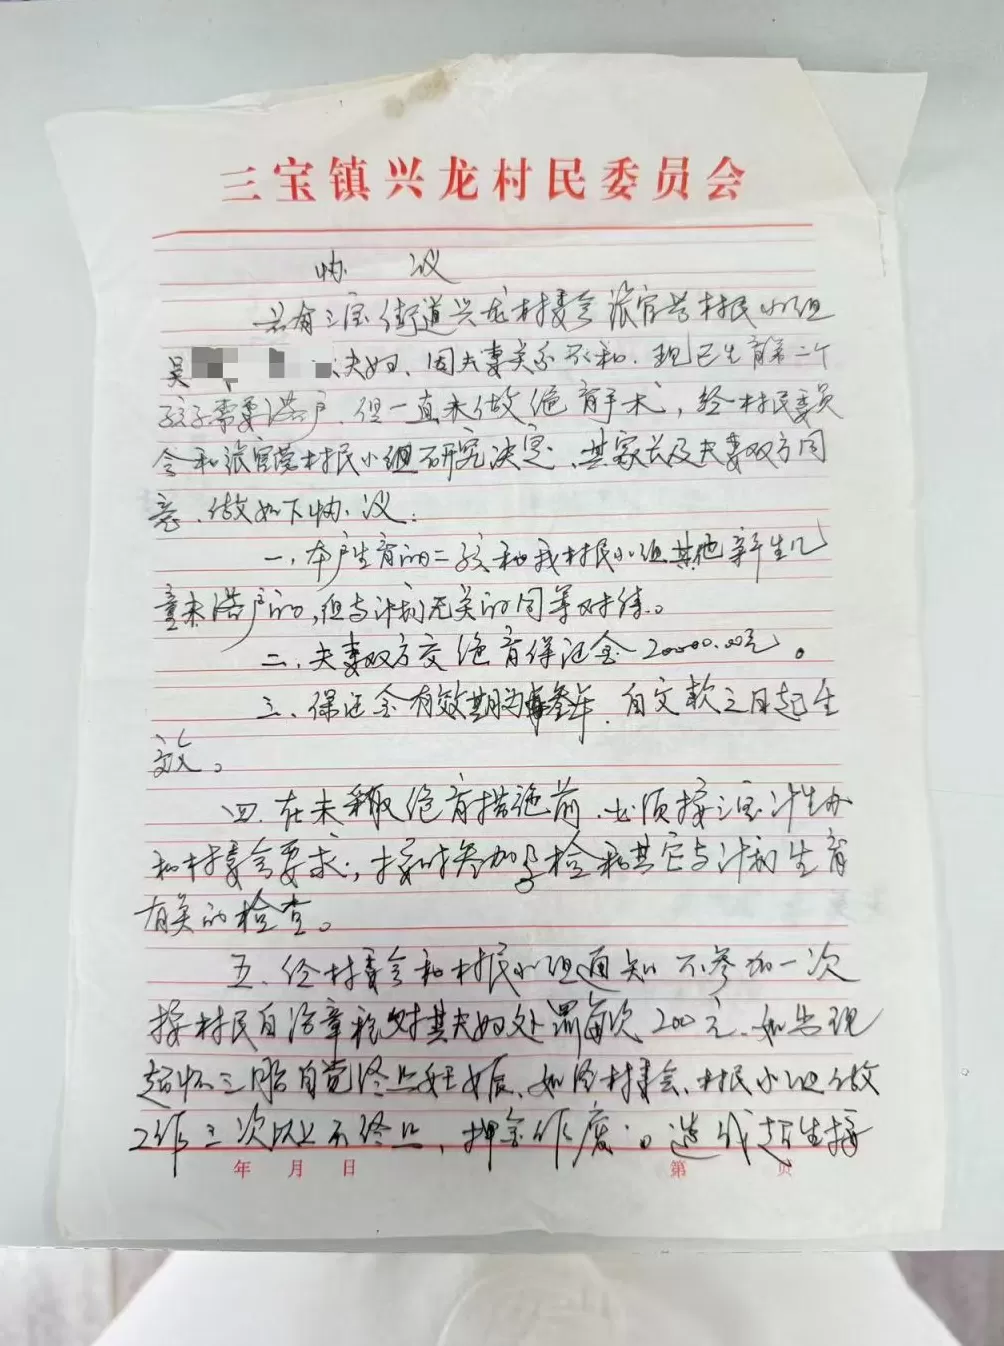 三宝镇兴龙村民委员会
协 议
兹有三宝街道兴龙村委会张官营村民小组
吴 夫妇、因夫妻关系不和.现已生育第二个
孩子需要落户.但一直未做绝育手术，经村民委员
会和张官营村民小组研究决定、其家长及夫妻双方同
意.做如下协议：
一、本户生育的二孩和我村民小组其他新生儿
童未落户的,但与计划无关的同等对待。
二、夫妻双方交绝育保证金20000.00元。
三、保证金有效期为叁年.自交款之日起生
效。
四、在未采取绝育措施前.必须按三宝计生办
和村委会要求，按时参加孕检和其它与计划生育
有关的检查。
五、经村委会和村民小组通知不参加一次
按村民自治章程对其夫妇处罚每次200元、如出现
超怀三胎自觉终止妊娠、如经村委会、村民小组做
工作三次以上不终止，押金作废。造成超生按
年 月 日 第 页